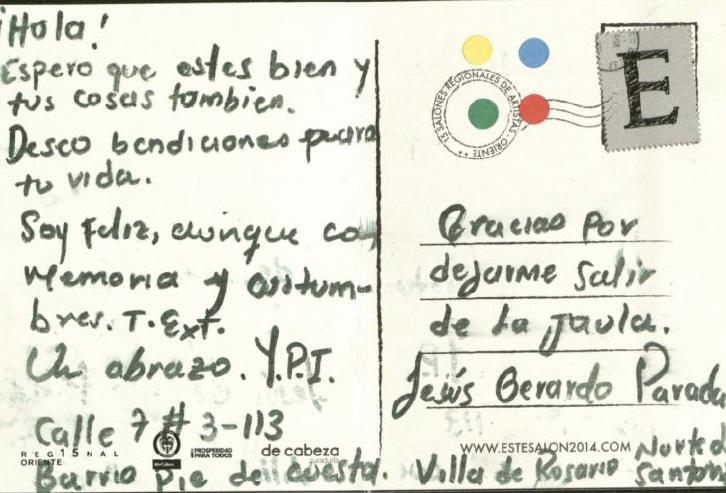 ¡Hola!
Espero que estes bien y
tus cosas tambien.
Deseo bendiciones para
tu vida.
Soy Feliz, aunque con
Memoria y costum-
bres. T. ExT.
Un abrazo. Y.P.I.
Calle 7 # 3-113
Barrio Pie de la cuesta.
REG15NAL
ORIENTE
PROSPERIDAD
PARA TODOS
de cabeza
curaduría
15 SALONES REGIONALES DE ARTISTAS - ORIENTE
E
Gracias Por
dejarme Salir
de La Jaula.
Jesús Gerardo Parada
WWW.ESTESALON2014.COM
Villa de Rosario Norte d
Santan